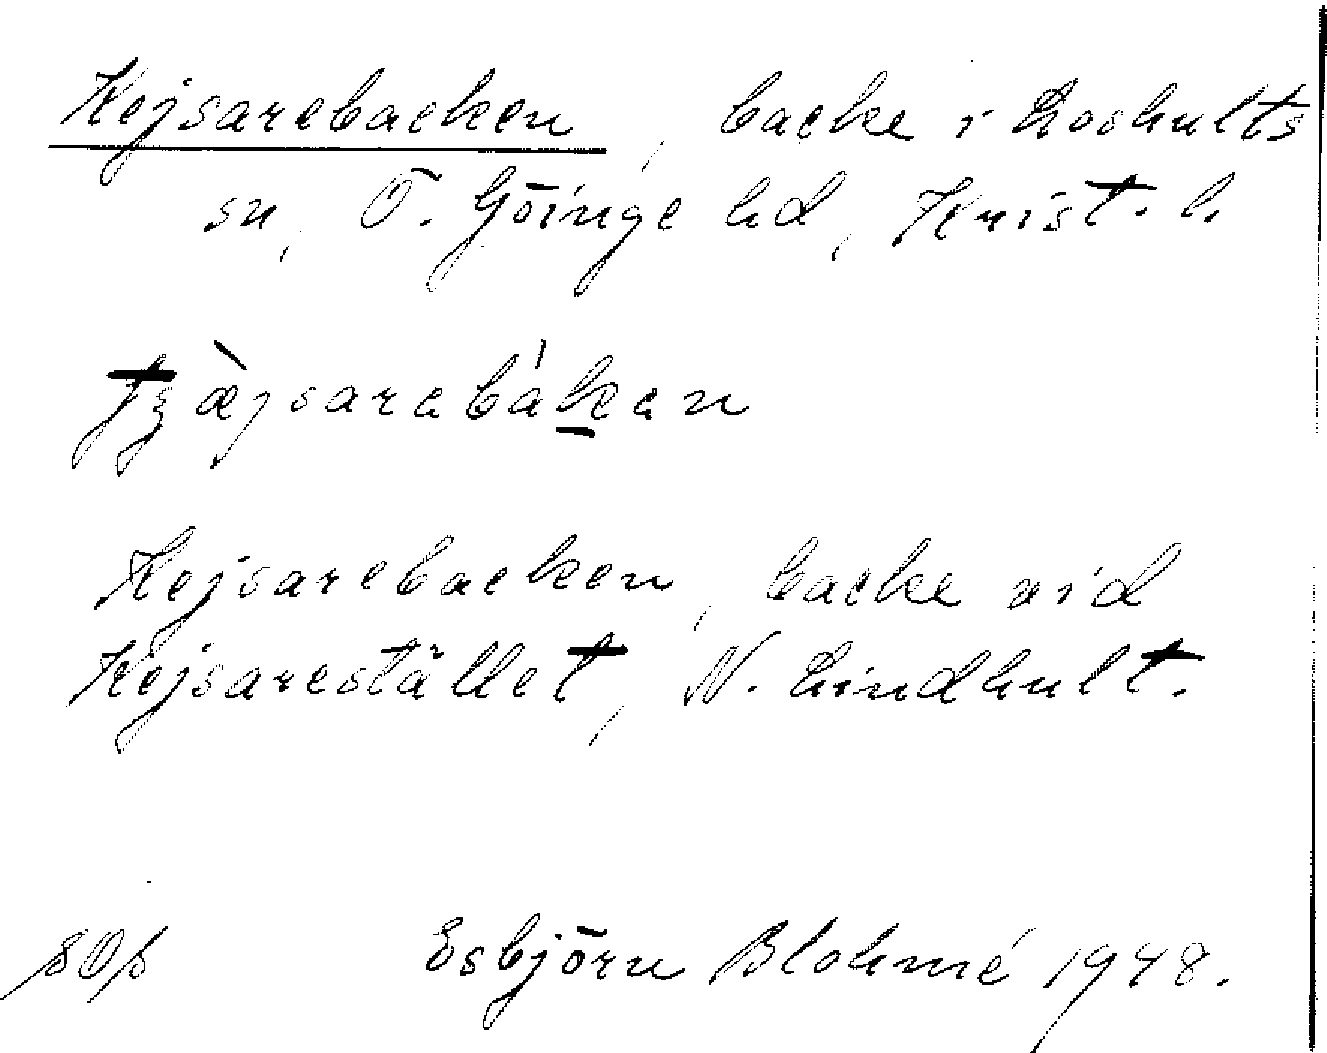 Kejsarebacken, backe i Loshults
sn, Ö. Göinge hd, Krist. l.
Kejsarebacken, backe vid
Kejsarestället, N. Lindhult.
Esbjörn Blohmé 1948.